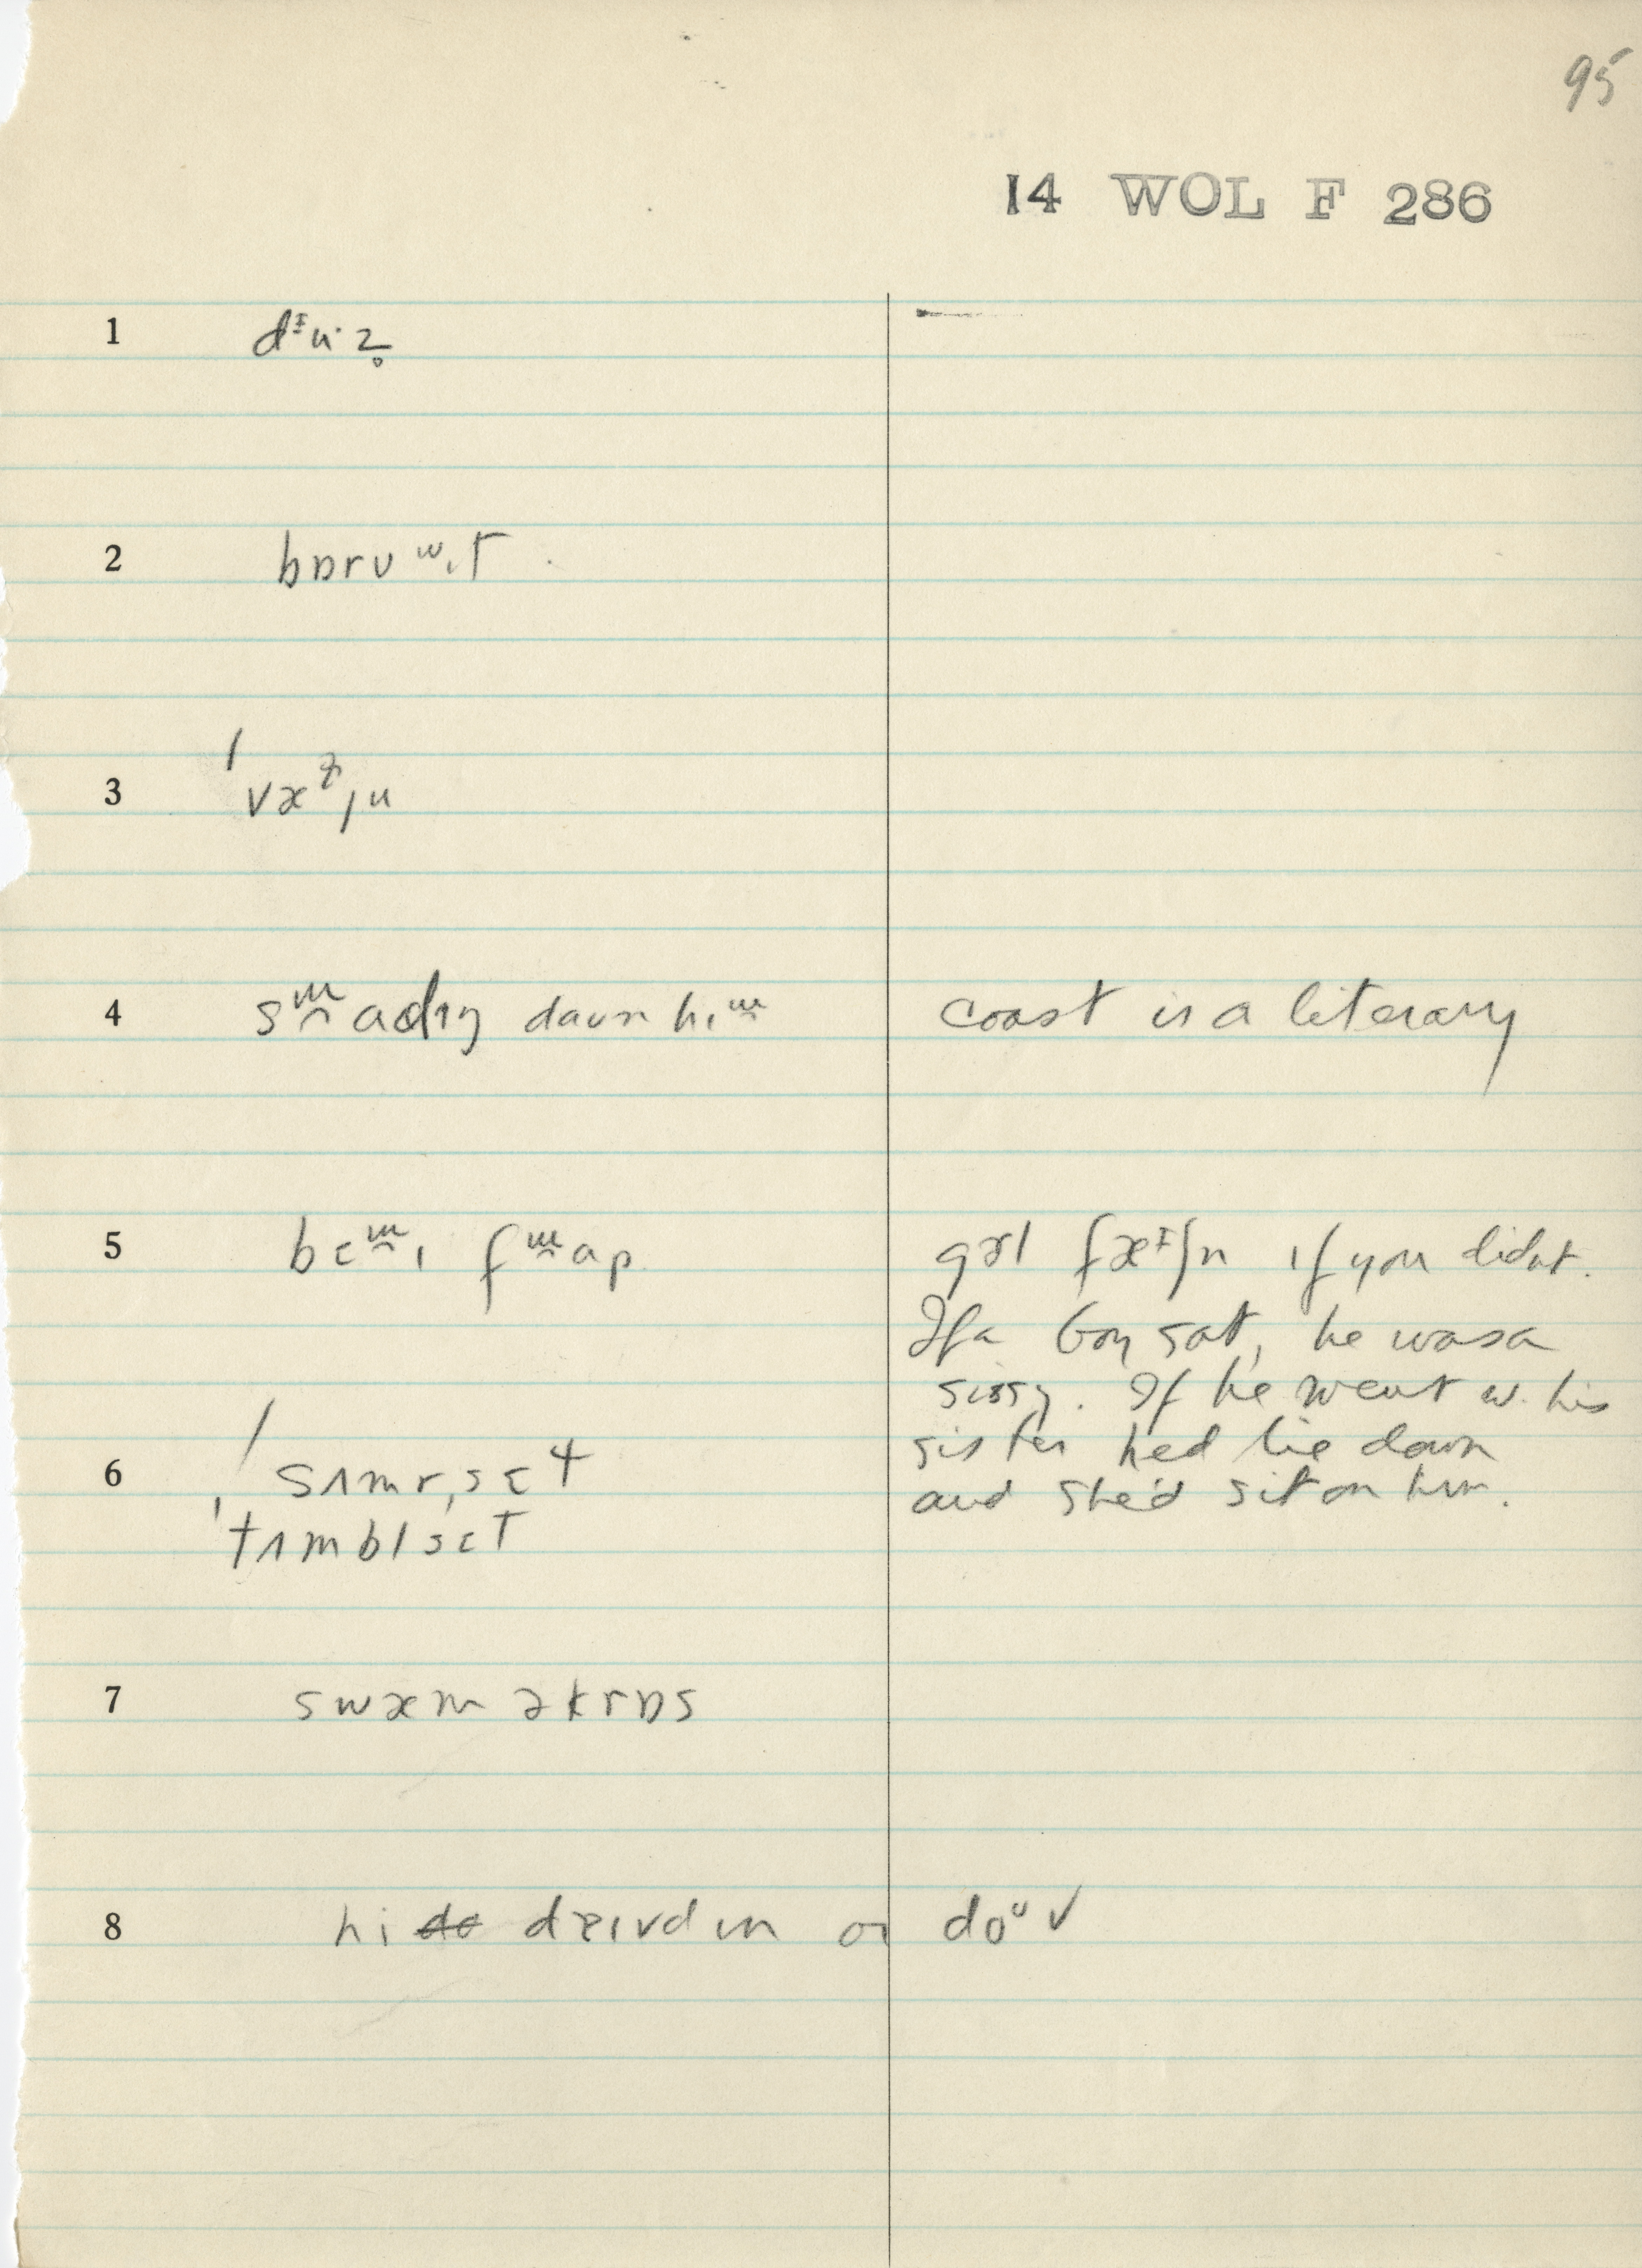 95
14 WOL F 286
1 dᶤu·z̥
2 bɒrʊʷɪt
3
4 slaɪdɪŋ daun hɪɫ coast is a literary
5 bɛlɪ flɑp gɜl fæᶤʃn if you didnt.
If a boy sat, he was a
sissy. If he went w. his
sister hed lie down
and she'd sit on him.
6 sʌmr,sɛt
'tʌmblsɛt
7 swæm əkrɒs
8 hi daɪvd ɪn ɒɪ doᵘv